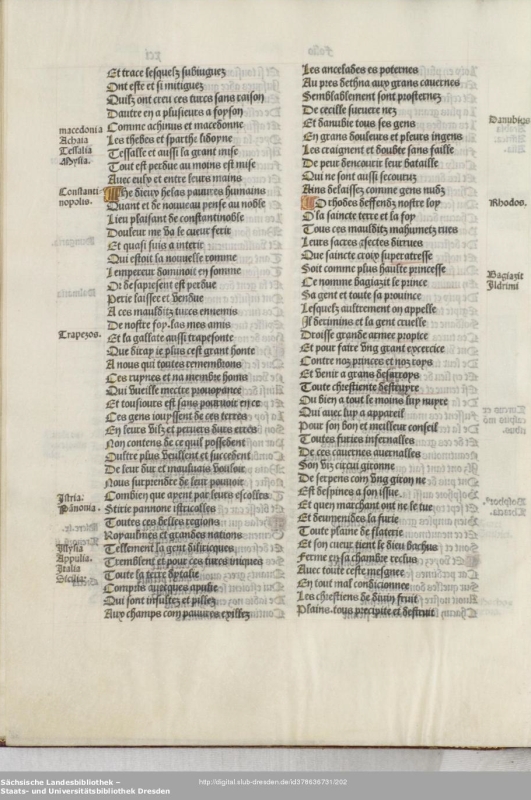 Et trace lesquelz subiuguez
Ont este et si mitiguez
Quilz ont creu ces turcs sans raison
Dautre en a plusieurs a foyson
macedonia
Comme achinus et macedonne
Achaia
Les thebes et sparthe sidoyne
Tessalia
Tessalle et aussi la grant mise
Mysia.
Tout est perdue au moins est mise
Auec eulx et entre leurs mains
Constantinopolis.
He dieux helas pauures humains
Quant et de nouueau pense au noble
Lieu plaisant de constantinoble
Douleur me va le cueur ferir
Et quasi suis a interir
Qui estoit la nouuelle romme
Lempereur dominoit en somme
Or de sapresent est perdue
Perie laissee et vendue
A ces maulditz turcs ennemis
De nostre foy. las mes amis
Trapezos.
Et la gallate aussi trapesonte
Que diray ie plus cest grant honte
A nous qui toutes remembrons
Ces ruynes et na membre homs
Qui vueille mectre pourpance
Et tousiours est sans pouruoir en ce
Ces gens iouyssent de ces terres
En leurs vilz et peruers durs erres
Non contens de ce quil possedent
Oultre plus veullent et succedent
De leur dur et mauluais vouloir
Nous surprendre de leur pouuoir
Istria.
Combien que ayent par leurs escolles
Pānonia.
Stirie pannone istricolles
Toutes ces belles regions
Royaulmes et grandes nations
Illysia
Tellement la gent dilliricques
Appulia.
Tremblent et pour ces turcs iniques
Italia
Toute la terre dytalie
Sicilia:
Compris auecques apulie
Qui sont insultez et pillez
Aux champs com pauures exillez
Les ancelades es poternes
Au pres dethna aux grans cauernes
Semblablement sont prosternez
De cecille sueurre nez
Danubius
Et danube tous ses gens
En grans douleurs et pleurs ingens
Les craignent et doubte sans faille
De peur dencourir leur bataille
Qui ne sont aussi secouruz
Ains delaissez comme gens nudz
Rhodos.
O rhodes deffendz nostre loy
O la saincte terre et la foy
Tous ces maulditz mahumetz tues
Leurs sacres sectes dirues
Que saincte croix superatresse
Soit comme plus haulte princesse
Bagiazit
Ce nomme bagiazit le prince
Ildrimi
Sa gent et toute sa prouince
Lesquelz aultrement on appelle
Ildrimins et la gent cruelle
Droisse grande armee propice
Et pour faire vng grant exercice
Contre noz princes et noz roys
Et venir a grans desarroys
Toute chrestiente destruyre
Ou bien a tout le moins luy nuyre
Qui auec luy a appareil
Pour son bon et meilleur conseil
Toutes furies infernalles
De ces cauernes auernalles
Son viz circui gironne
De serpens com vng giron ne
Est despines a son issue
Et quen marchant ont ne se tue
Et deumenides la furie
Toute plaine de flaterie
Et son cueur tient le dieu bachus
Ferme en sa chambre reclus
Auec toute ceste mesgnee
En tout mal condicionnee
Les chrestiens de diuin fruit
Plains. tous precipite et destruit
Sächsische Landesbibliothek –
Staats- und Universitätsbibliothek Dresden
http://digital.slub-dresden.de/id379636731/202